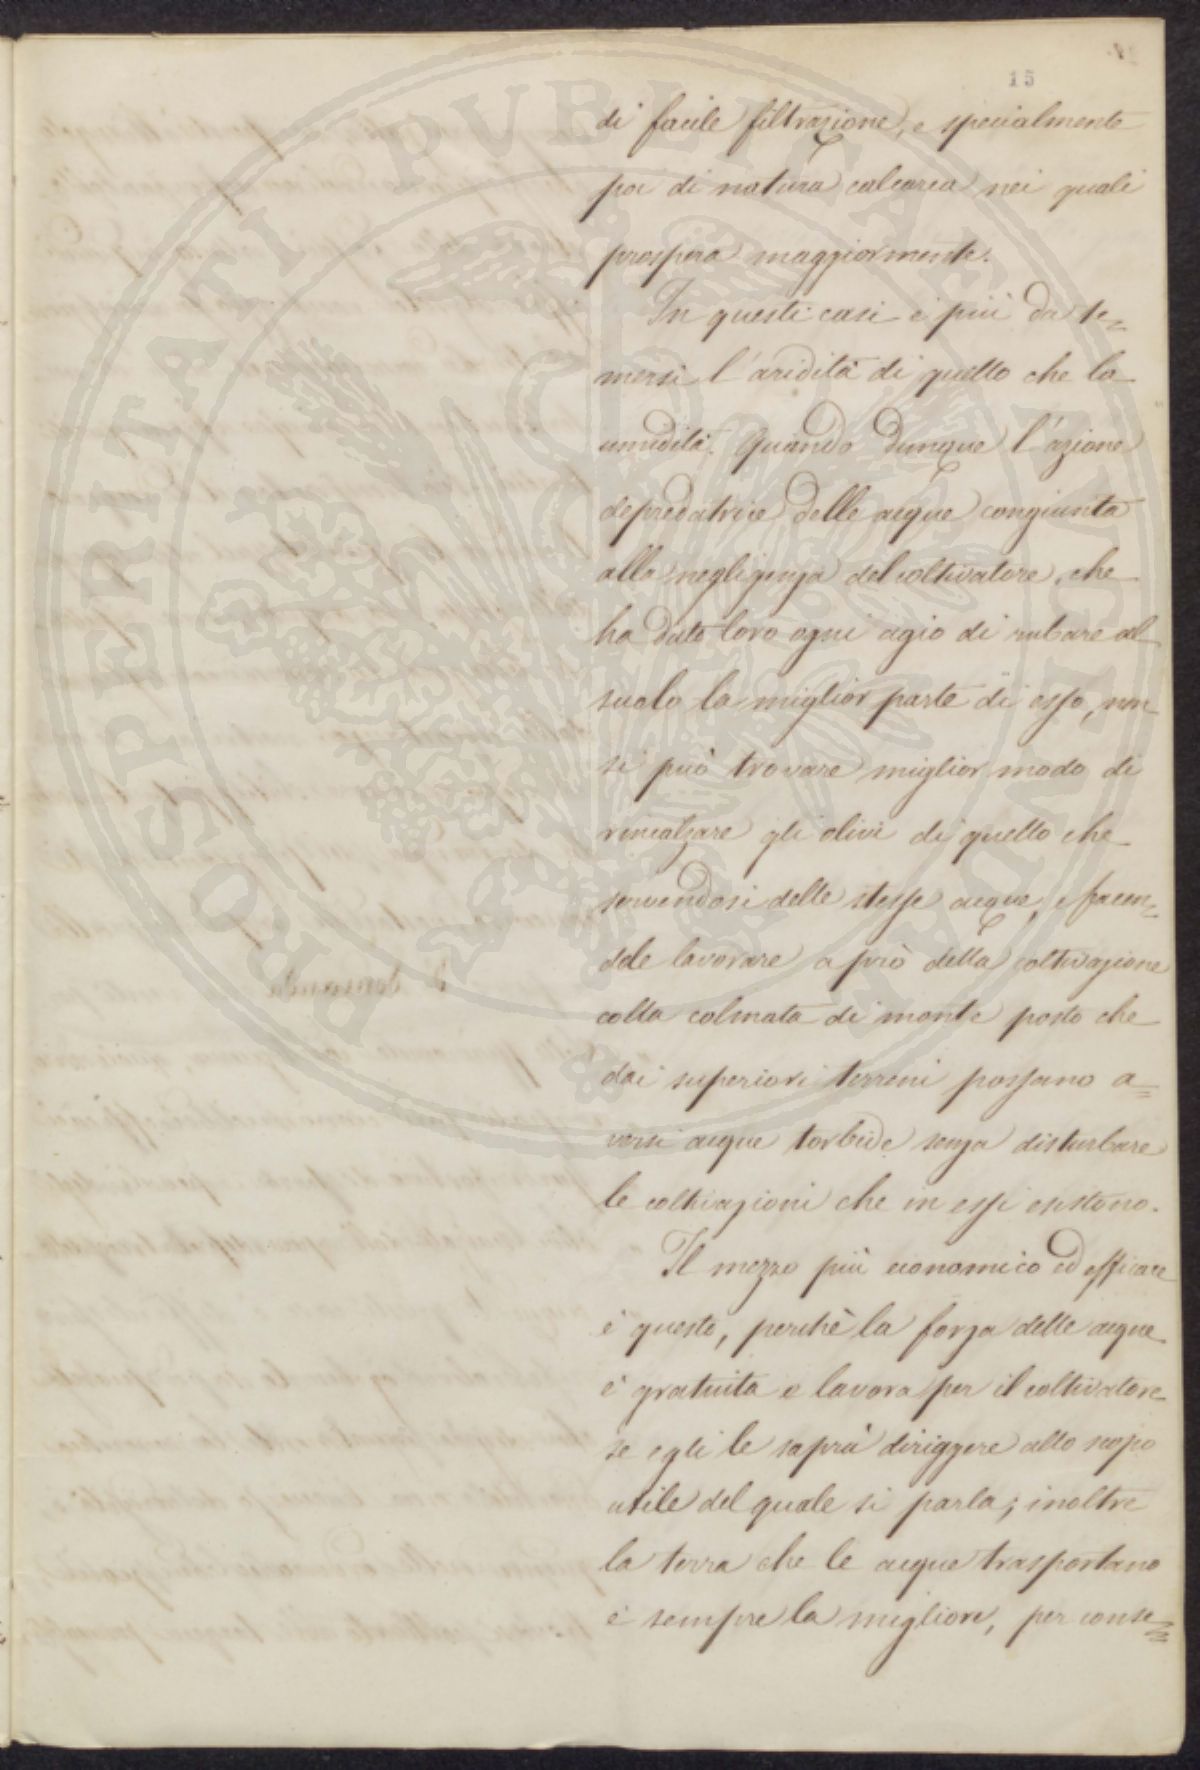 15
di facile filtrazione, e specialmente
poi di natura calcarea nei quali
prospera maggiormente.
In questi casi è più da te=
mersi l'aridità di quello che la
umidità. Quando dunque l'azione
depredatrice delle acque congiunta
alla negligenza del coltivatore, che
ha dato loro ogni agio di rubare al
suolo la miglior parte di esso, non
si può trovare miglior modo di
rincalzare gli olivi di quello che
servendosi delle stesse acque, e facen=
dole lavorare a prò della coltivazione
colla colmata di monte posto che
dai superiori terreni possano a=
versi acque torbide senza disturbare
le coltivazioni che in essi esistono.
Il mezzo più economico ed efficace
è questo, perchè la forza delle acque
è gratuita e lavora per il coltivatore
se egli le saprà diriggere allo scopo
utile del quale si parla; inoltre
la terra che le acque trasportano
è sempre la migliore, per conse=
PROSPERITATI PUBLICAE AUGENDAE